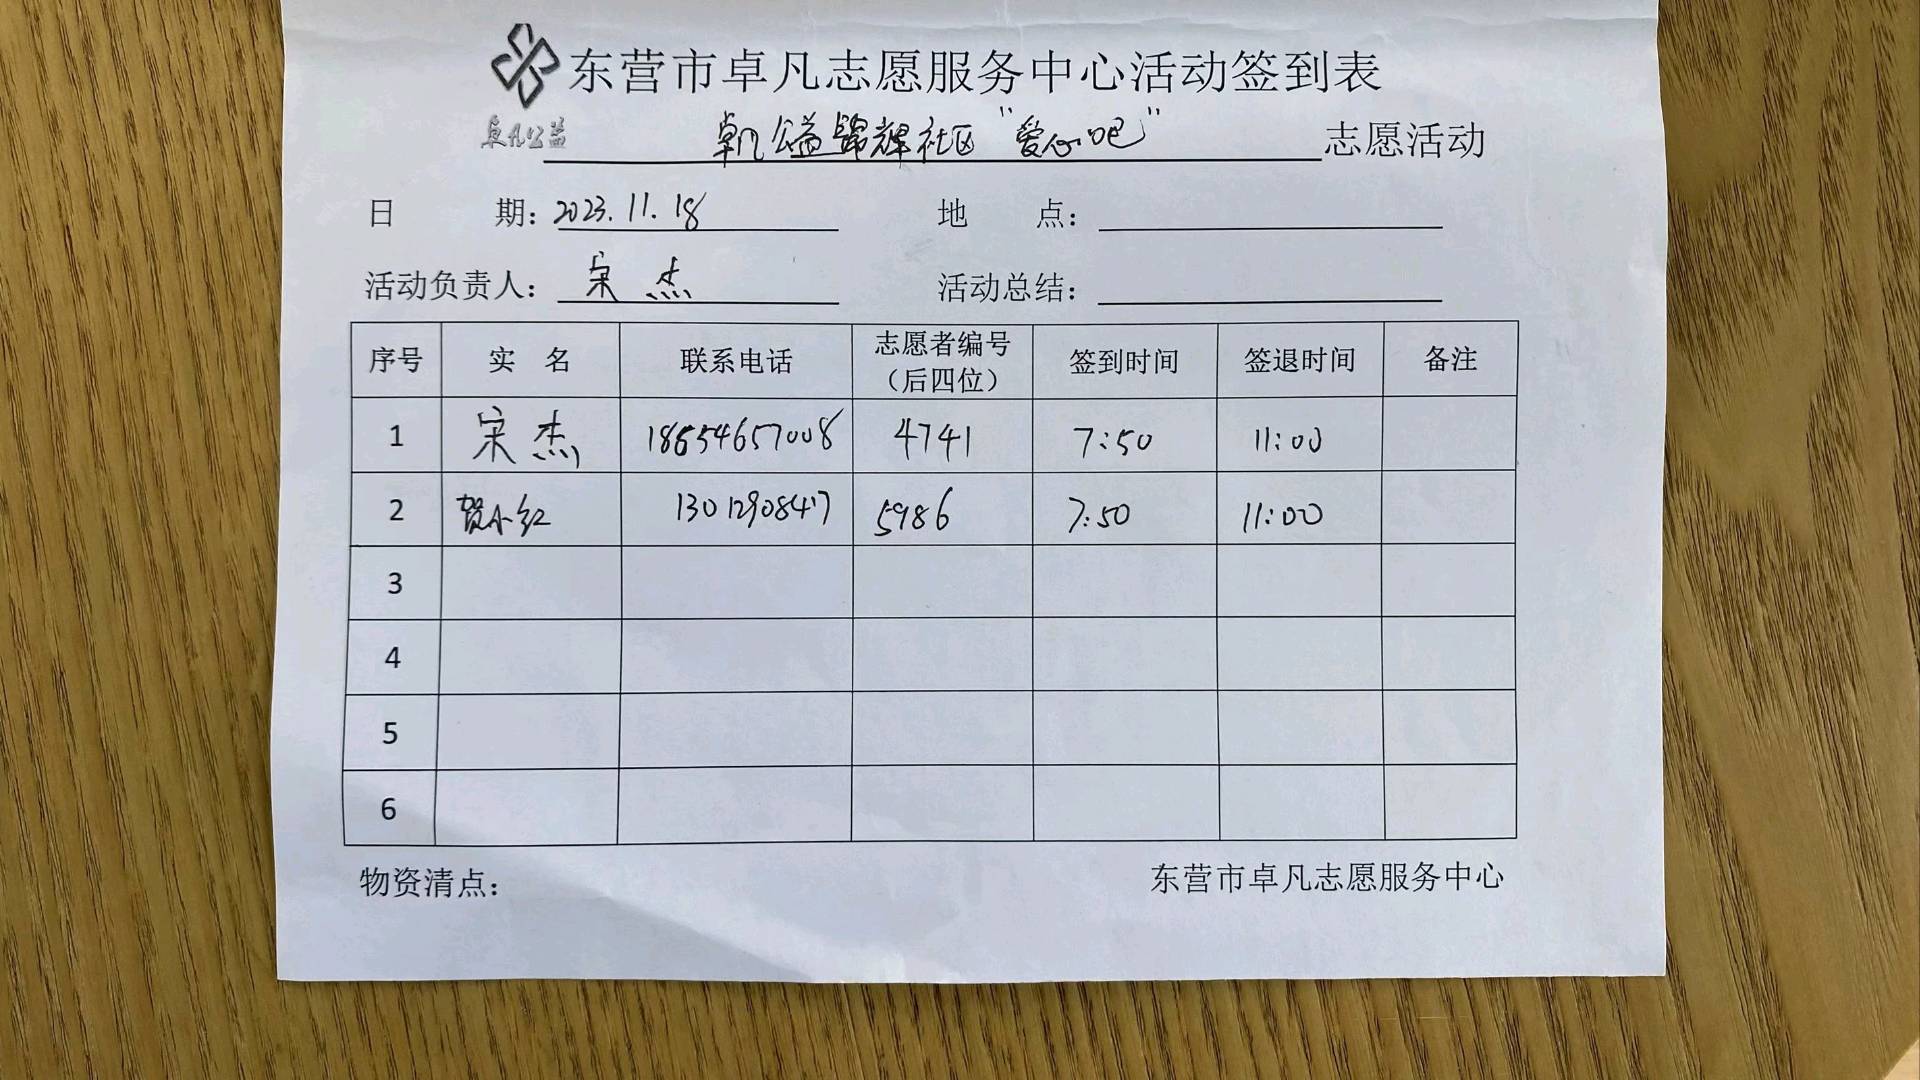 东营市卓凡志愿服务中心活动签到表
卓凡公益
卓凡公益锦辉社区“爱心吧” 志愿活动
日 期：2023.11.18 地 点：
活动负责人：宋杰 活动总结：
序号 实 名 联系电话 志愿者编号（后四位） 签到时间 签退时间 备注
1 宋杰 18654657008 4741 7:50 11:00
2 贺小红 13012908417 5986 7:50 11:00
3
4
5
6
物资清点： 东营市卓凡志愿服务中心